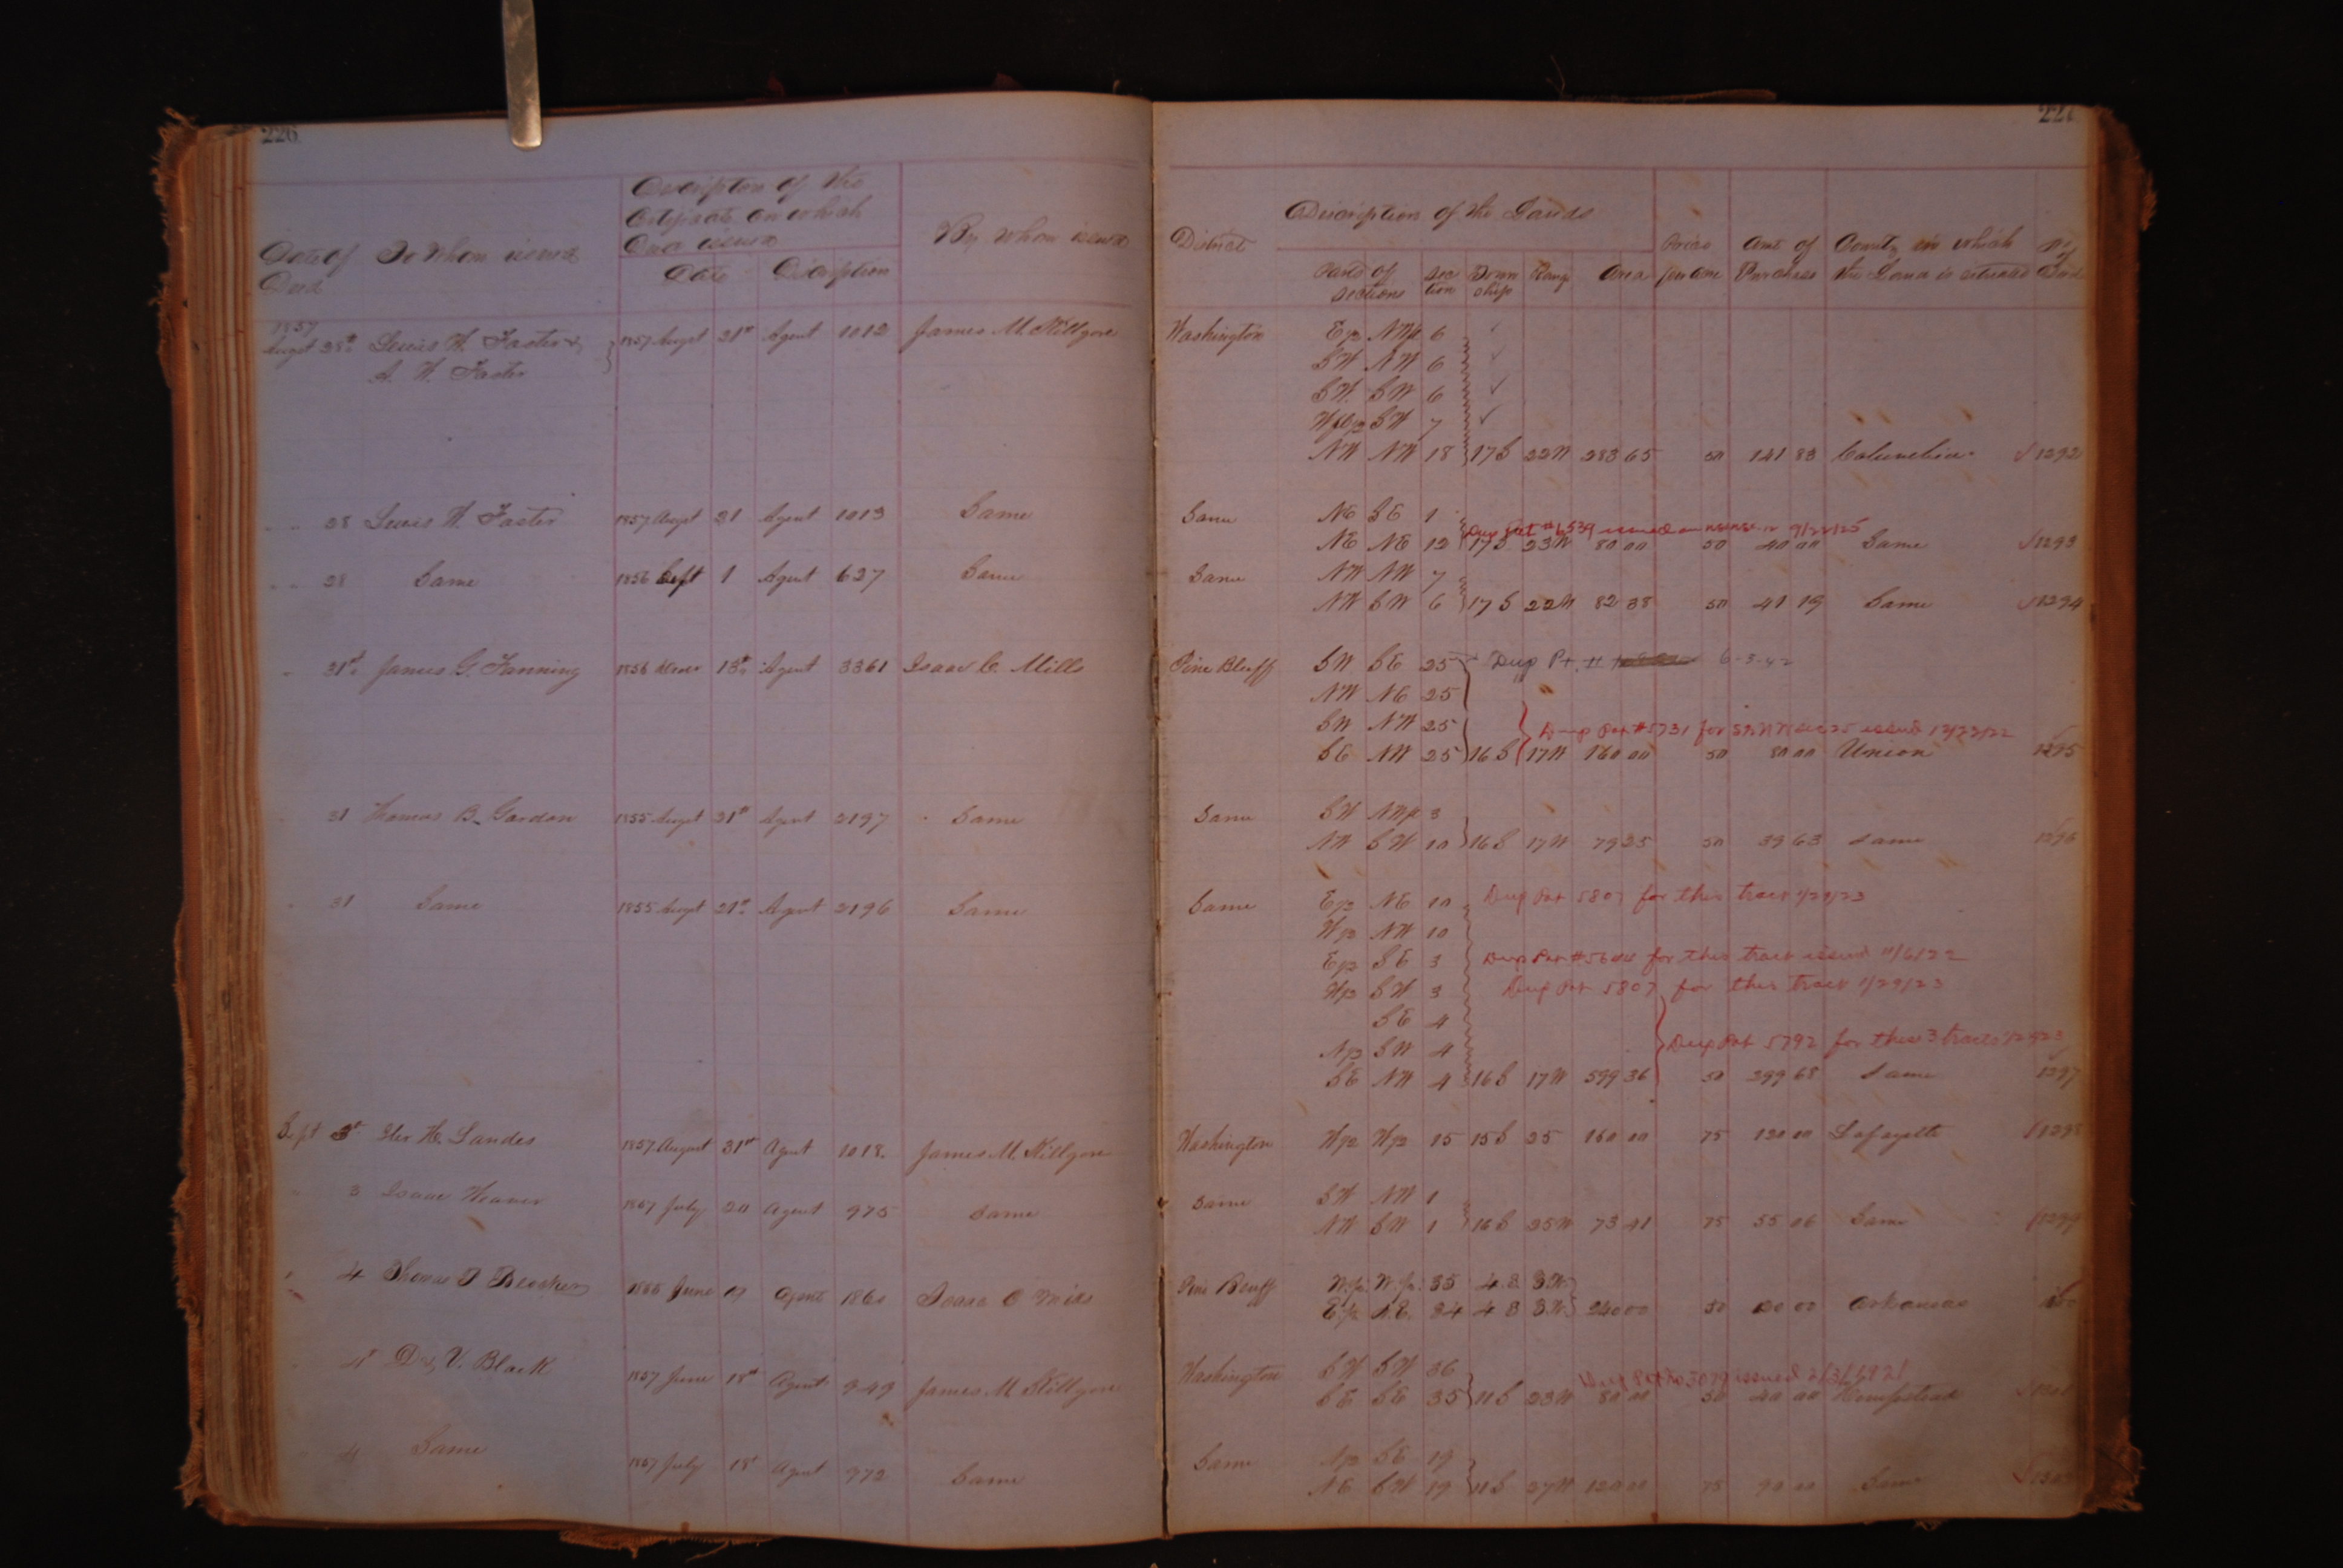 226
Date of Deed To Whom issued Description of the Certificate on which Deed issued Date Discription By Whom issued
1857
August 28th Lewis W. Foster & 1857 Augst 21st Agent 1012 James M. Killgore
A. W. Foster
" " 28 Lewis W. Foster 1857 Augst 21 Agent 1013 Same
" " 28 Same 1856 Sept 1 Agent 627 Same
" 31st James G. Fanning 1856 13th Agent 3361 Isaac C. Mills
31 Thomas B. Gordon 1855 Augst 21st Agent 2197 Same
" 31 Same 1855 Augst 21st Agent 2196 Same
Sept 3d H. Landes 1857 August 31st Agent 1018. James M. Killgore
" 3 Isaac 1857 July 20 Agent 975 Same
" 4 Thomas 1855 June 19 Agent 1860 Isaac C Mills
" 4th V. Black 1857 June 18th Agent 949 James M Killgore
" 4 Same 1857 July 18t Agent 972 Same
District Description of the Lands Parts of sections Section Township Range Area Price per acre Amt of Purchase County in which the Land is situated No of Deed
Washington E½ NW¼ 6 ✓
SW NW 6 ✓
SW. SW 6 ✓
SW 7 ✓
NW NW 18 17S 22W 283 65 50 141 83 Columbia ✓1292
Same NE SE 1
Dup Pat #6539 issued on 9/22/25
NE NE 12 17S 23W 80 00 50 40 00 Same ✓1293
Same NW NW 7
NW SW 6 17S 22W 82 38 50 41 19 Same ✓1294
Pine Bluff SW SE 25 Dup Pt. # 6-3-42
NW NE 25
SW NW 25
Dup Pat #5731 for SW NW sec 25 issued 12/23/22
SE NW 25 16S 17W 160 00 50 80 00 Union 1295
Same SW NW¼ 3
NW SW 10 16S 17W 79 25 50 39 63 Same 1296
Same E½ NE 10 Dup Pat 5807 for this tract 1/29/23
W½ NW 10
E½ SE 3 Dup Pat #5644 for this tract issued 11/6/22
W½ SW 3 Dup Pat 5807 for this tract 1/29/23
SE 4
N½ SW 4 Dup Pat 5792 for these 3 tracts
SE NW 4 16S 17W 599 36 50 299 68 Same 1297
Washington W½ W½ 15 15S 25 160 00 75 120 00 Lafayette ✓1298
Same SW NW 1
NW SW 1 16S 25W 73 41 75 55 06 Same ✓1299
Pine Bluff W½ W½ 35 4 S 3W
E½ N.E. 34 4 S 3W 240 00 50 00 Arkansas
Washington SW SW 36
Dup Pat No 3079 issued 2/3/1921
SE SE 35 11S 23W 80 00 50 40 00 Hempstead
Same N½ SE 19
NE SW 19 11S 27W 120 00 75 90 00 Same